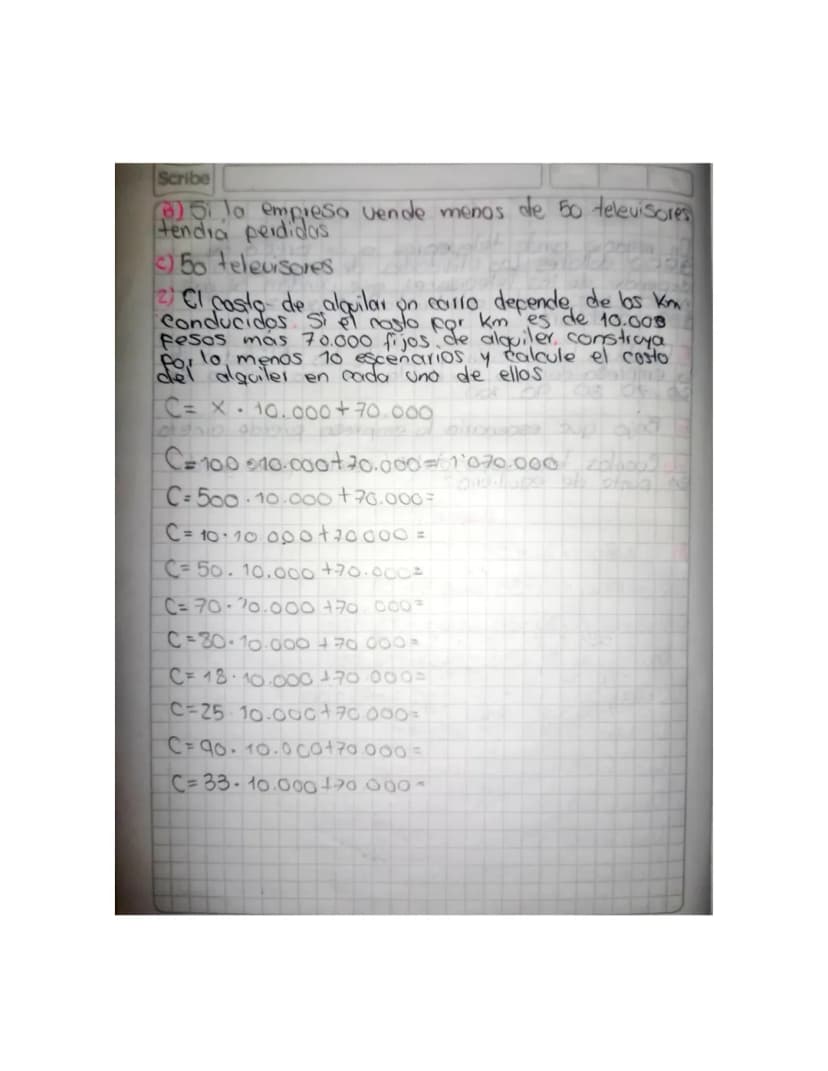 Scribe
B) Si la empresa vende menos de 50 televisores
tendra perdidas
c) 50 televisores
2) El costo de alquilar un carro depende de los Km
conducidos. Si el costo por Km es de 10.000
pesos mas 70.000 fijos de alquiler. construya
por lo menos 10 escenarios y calcule el costo
del alquiler en cada uno de ellos
C= X . 10.000+70.000
C=100 . 10.000+70.000= 1'070.000
C=500 . 10.000+70.000=
C= 10 . 10.000+70000 =
C= 50 . 10.000 +70.000=
C= 70 . 10.000 +70.000=
C=80 . 10.000 +70 000=
C= 18 . 10.000 +70 000=
C=25 . 10.000+70 000=
C=90 . 10.000+70 000=
C=33 . 10.000+70.000=